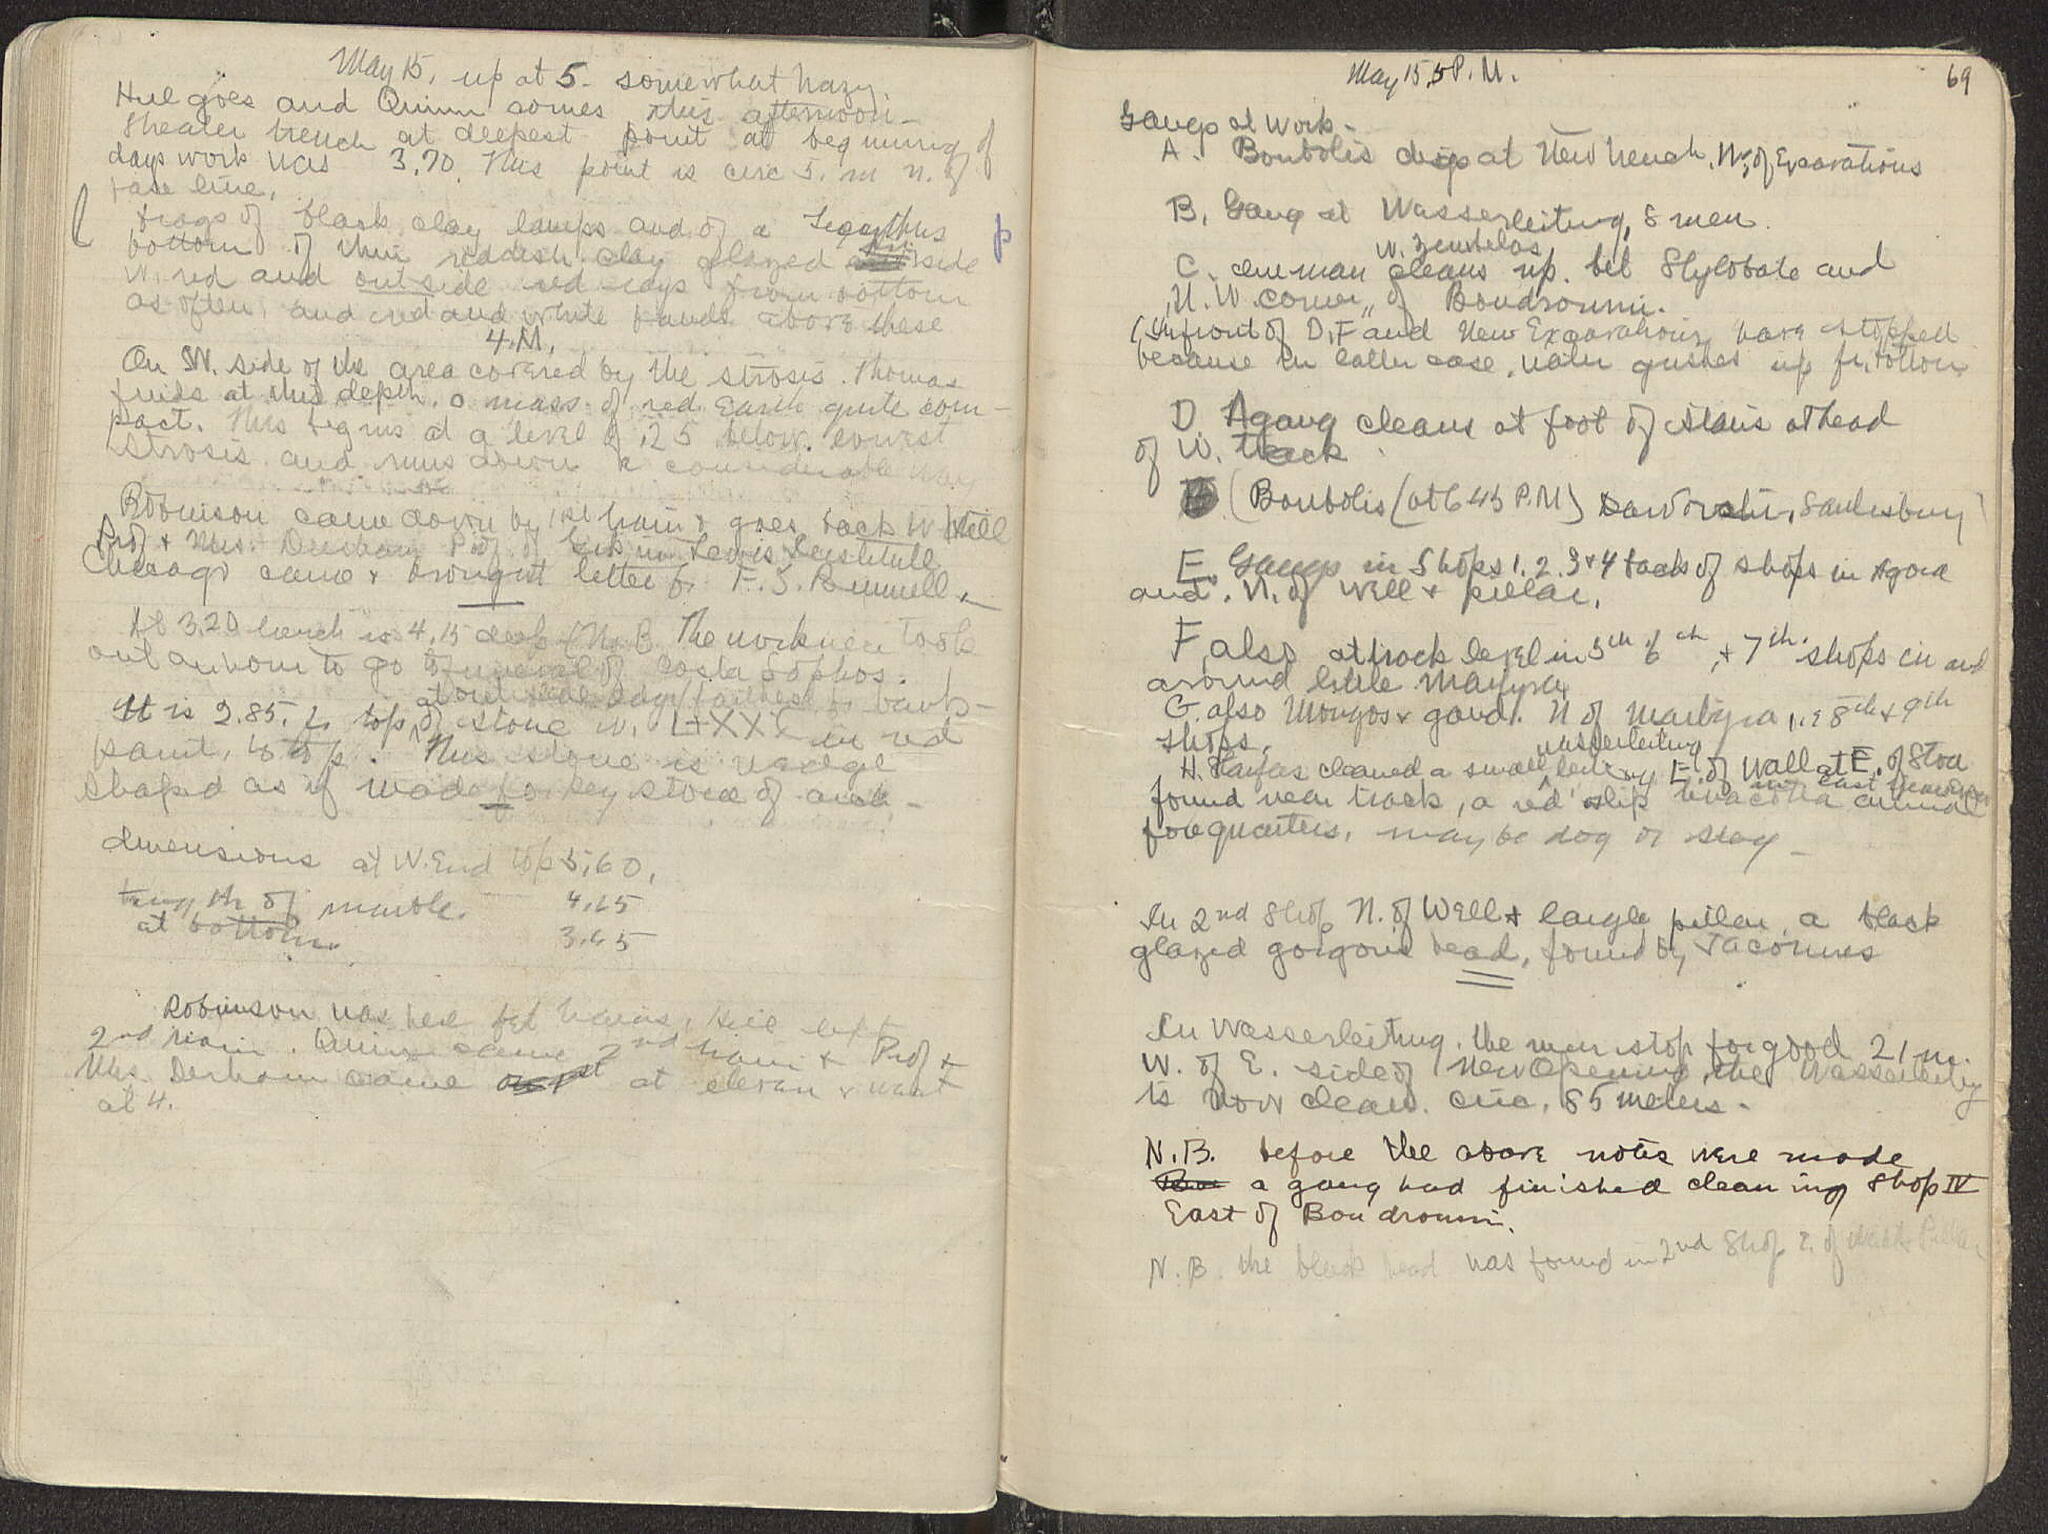 May 15, up at 5. somewhat hazy.
Hill goes and Quinn comes this afternoon—
Theater trench at deepest point at beginning of
days work was 3.70. This point is circ 5. m n. of
base line.
frags of black clay lamps and of a
bottom of thin reddish clay glazed in side
w. red and outside red rays from bottom
as often, and red and white bands above these
4. M.
On W. side of the area covered by the strosis. Thomas
finds at this depth. a mass of red Earth quite com-
pact. This begins at a level of .25 below. lowest
strosis. and runs down a considerable way
Robinson came down by 1st train & goes back w Hill
Prof & Mrs. Derham Prof. of Lewis Institute
Chicago came & brought letter fr.
At 3.20 trench is 4.15 deep (N.B. The workmen took
out an hour to go to funeral of Costa Sophos.
It is 2.85. fr top of stone w. in red
at outside edge farthest fr bank—
paint, to top. This stone is wedge
shaped as if made for key stone of arch—
dimensions at W. End top 5,60,
length of marble. 4.15
at bottom.
Robinson was here bet trains, Hill left
2nd train. Quinn came 2nd train & Prof &
Mrs. Derham came at eleven & went
at 4.
May 15, 5 P. M.
69
Gangs at work—
A. Boubolis digs at New trench. W. of Excavations
B. Gang at Wasserleitung, 8 men.
w. zembelas
C. one man cleans up. bet Stylobate and
N. W. corner of Boudroumi.
(In front of D, F and New Excavations have stopped
because in latter case, water gushes up fr. bottom
D A gang cleans at foot of stairs at head
of W. track.
(Boubolis (at 6 45 P.M)
E. Gangs in Shops 1. 2. 3 & 4 back of shops in Agora
and. N. of well & pillar.
F. also at track level in 5th 6th, & 7th. shops in and
around little
G. also Mongos & gang. N of 8th & 9th
shops.
H. cleaned a small wasserleitung E. of Wall at E. of Stoa
found near track, a red slip terracotta animal
forequarters, may be dog or stag—
In 2nd Shop N. of Well & large pillar, a black
glazed gorgons head, found by
In Wasserleitung. the men stop for good 21 m.
W. of E. side of New Opening, the Wasserleitung
is now clean. circ. 85 meters—
N.B. before the above notes were made
a gang had finished cleaning Shop IV
East of Boudroumi.
N. B. the black head was found in 2nd Shop